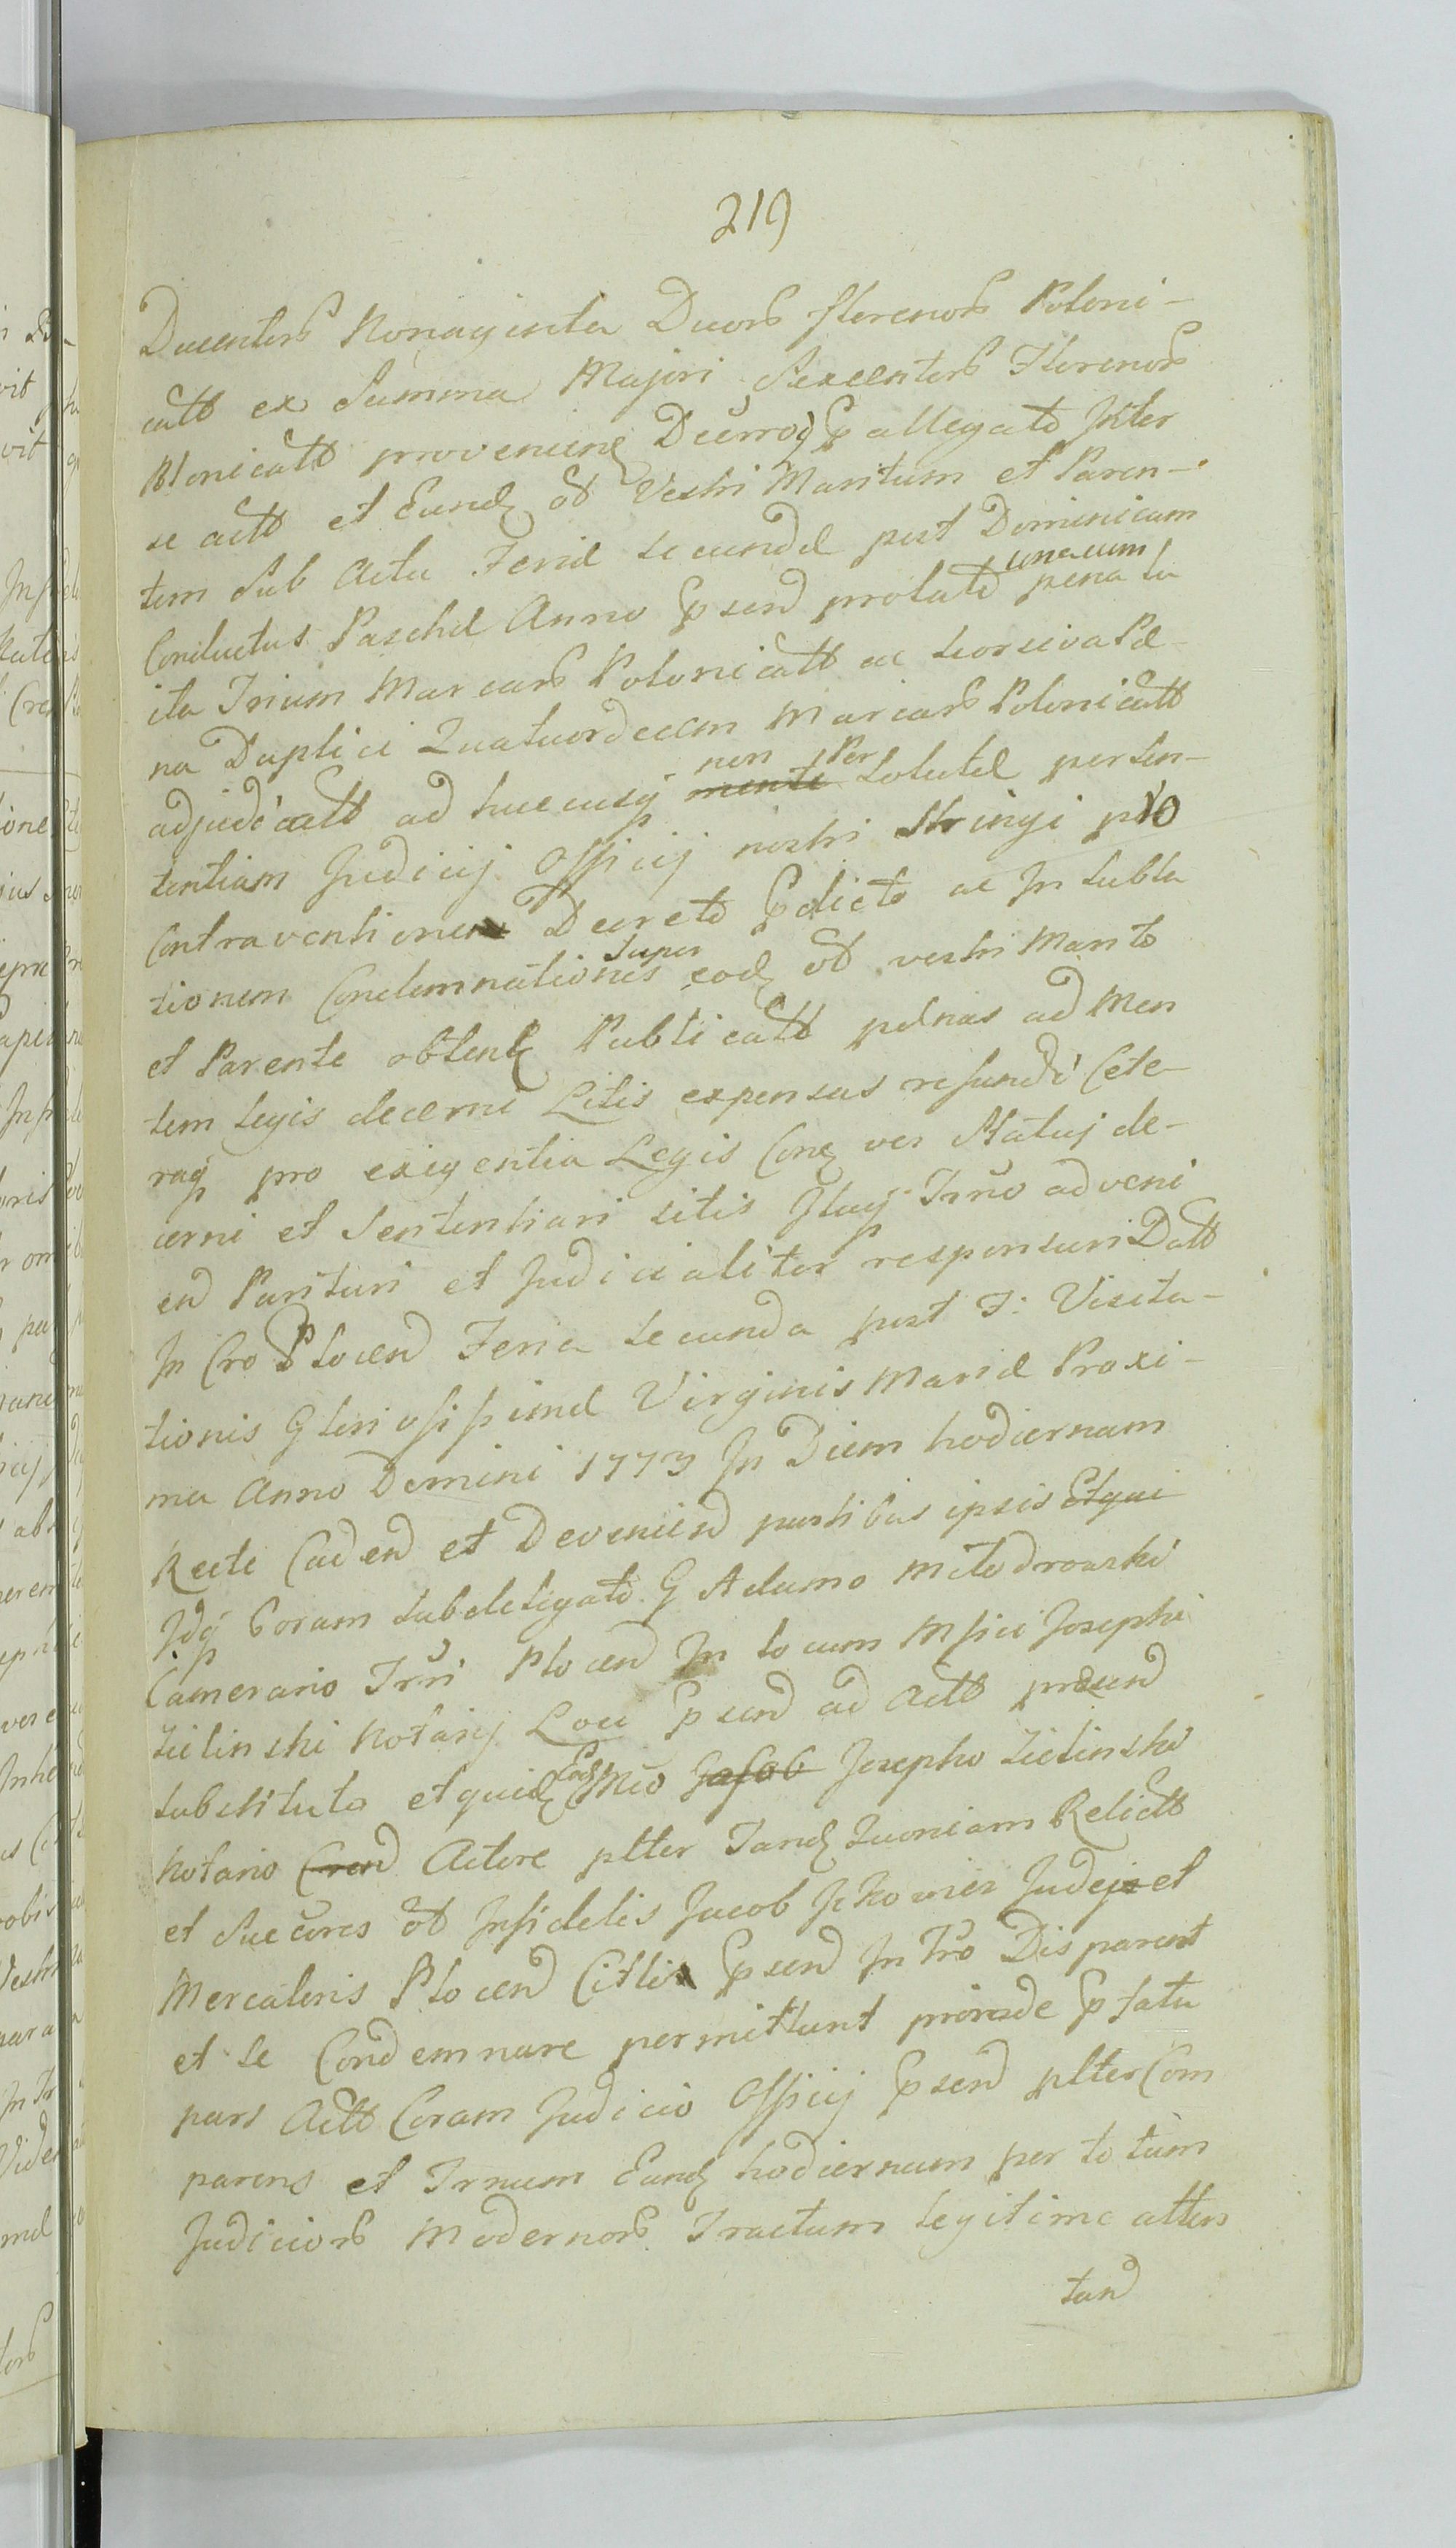 219
Ducentors Nonaginta Duors florenors Poloni-
catt ex Summa Majori Sexcentors Florenors
Plonicatt provenien Decrroq pallegato Inter
se actt et Eund ot Vestri Maritum et Paren-
tem Sub Actu Feriæ secundæ post Dominicam
Conductus Paschæ Anno psend prolato unacum pena lu
ita Trium Marcars Polonicatt ac seorsiva Pæ-
na Duplici Quatuordecem Marcars Polonicatt
adjudicatt ad hucusq mente non Per Solutæ perlen-
tentiam Judicij Officij nostri Stringi pro
Contraventionem Decreto pdicto ac In subla
tionem Condemnationis super eod ot vestri Marito
et Parente obtent Publicatt pænas ad Men
tem Legis decerni Litis expensas refundi Cete-
raq pro exigentia Legis Con ver Statuj de-
cerni et Sententiari sitis Itaq Trño adveni
end Parituri et Judicialiter responsuri Datt
In Cro Plocend Feria secunda post F: Visita-
tionis Gloriosissimæ Virginis Mariæ Proxi-
ma Anno Domini 1773 In Diem hodiernam
Recte Cadend et Deveniend partibus ipsis Etqui
Idq Coram subdelegato G Adamo Mitodrowski
Camerario Trri Plocend In locum Mfici Josephi
Zielinski Notarij Loci psend ad Actt præsend
substituto etquid Eod Mco Jacob Josepho Zielinski
Notario Crend Actore plter Tand Quoniam Relictt
et Succres ot Infidelis Jacob Ickowicz Judej et
Mercatoris Plocend Citti psend In Tro Disparent
et se Condemnare permittunt proinde pfatu
pars Actt Coram Judicio Officij psend plter Com
parens et Trnum Eund hodiernum per totum
Judiciors Modernors Tractum legitime atten
tand